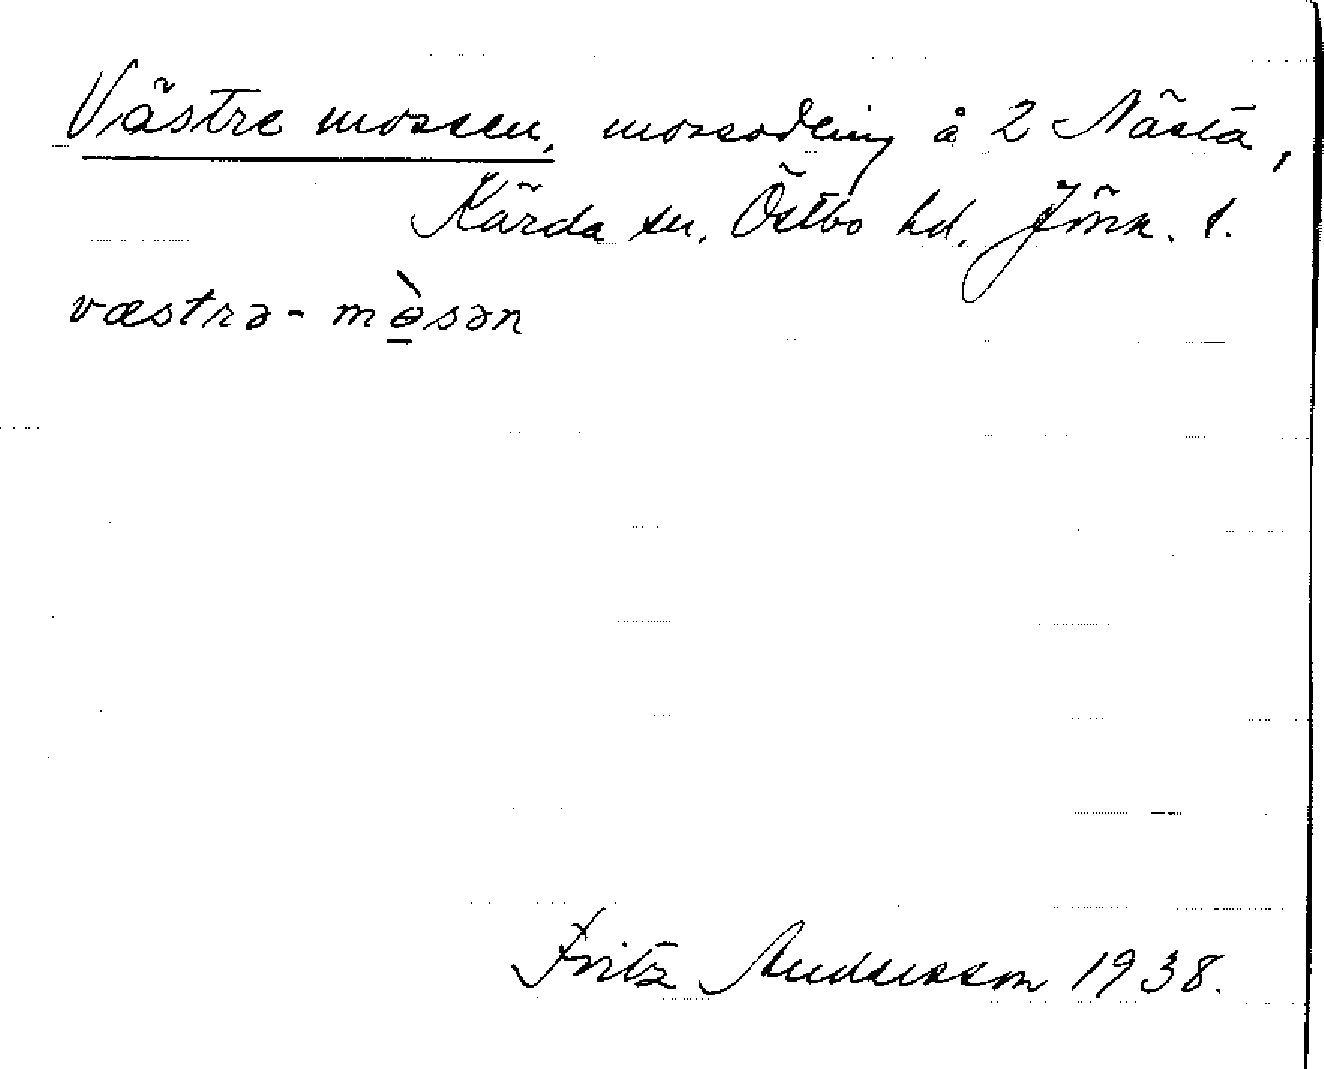 Västre mossen, mossodling å 2 Nästa,
Kärda sn. Östbo hd. Jönk. l.
væstrə- mə̀sən
Fritz Andersson 1938.